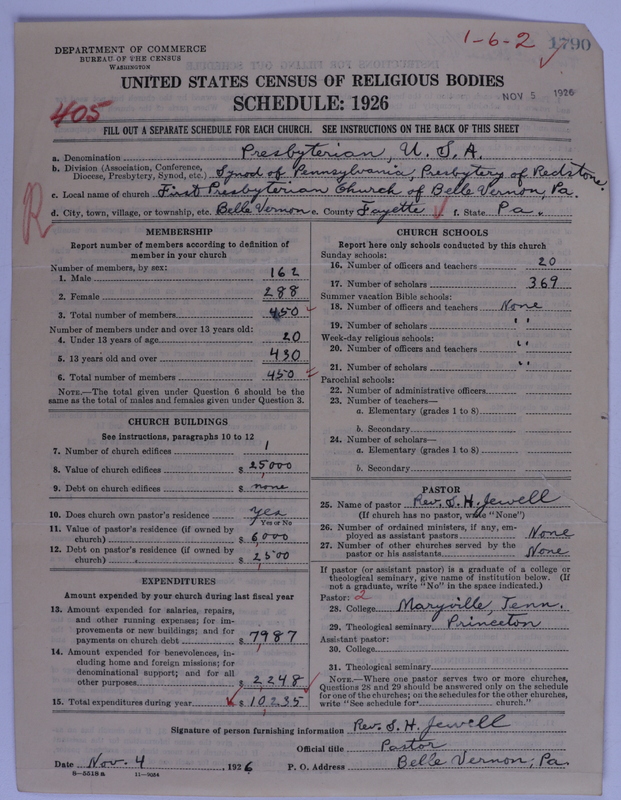 1-6-2
1790
DEPARTMENT OF COMMERCE
BUREAU OF THE CENSUS
WASHINGTON
UNITED STATES CENSUS OF RELIGIOUS BODIES
SCHEDULE: 1926
NOV 5 1926
405
FILL OUT A SEPARATE SCHEDULE FOR EACH CHURCH. SEE INSTRUCTIONS ON THE BACK OF THIS SHEET
a. Denomination Presbyterian, U. S. A.
b. Division (Association, Conference, Diocese, Presbytery, Synod, etc.) Synod of Pennsylvania, Presbytery of Redstone.
c. Local name of church First Presbyterian Church of Belle Vernon, Pa.
d. City, town, village, or township, etc. Belle Vernon e. County Fayette f. State Pa.
R
MEMBERSHIP
Report number of members according to definition of
member in your church
Number of members, by sex:
1. Male 162
2. Female 288
3. Total number of members 450
Number of members under and over 13 years old:
4. Under 13 years of age 20
5. 13 years old and over 430
6. Total number of members 450
NOTE.—The total given under Question 6 should be
same as the total of males and females given under Question 3.
CHURCH BUILDINGS
See instructions, paragraphs 10 to 12
7. Number of church edifices 1
8. Value of church edifices $ 25000
9. Debt on church edifices $ none
10. Does church own pastor's residence yes
Yes or No
11. Value of pastor's residence (if owned by
church) $ 6000
12. Debt on pastor's residence (if owned by
church) $ 2,500
EXPENDITURES
Amount expended by your church during last fiscal year
13. Amount expended for salaries, repairs,
and other running expenses; for im-
provements or new buildings; and for
payments on church debt $ 7987
14. Amount expended for benevolences, in-
cluding home and foreign missions; for
denominational support; and for all
other purposes $ 2,248
15. Total expenditures during year $ 10235
CHURCH SCHOOLS
Report here only schools conducted by this church
Sunday schools:
16. Number of officers and teachers 20
17. Number of scholars 369
Summer vacation Bible schools:
18. Number of officers and teachers None
19. Number of scholars "
Week-day religious schools:
20. Number of officers and teachers "
21. Number of scholars "
Parochial schools:
22. Number of administrative officers
23. Number of teachers—
a. Elementary (grades 1 to 8)
b. Secondary
24. Number of scholars—
a. Elementary (grades 1 to 8)
b. Secondary
PASTOR
25. Name of pastor Rev. S. H. Jewell
(If church has no pastor, write "None")
26. Number of ordained ministers, if any, em-
ployed as assistant pastors None
27. Number of other churches served by the
pastor or his assistants None
If pastor (or assistant pastor) is a graduate of a college or
theological seminary, give name of institution below. (If
not a graduate, write "No" in the space indicated.)
Pastor: 2
28. College Maryville, Tenn.
29. Theological seminary Princeton
Assistant pastor:
30. College
31. Theological seminary
NOTE.—Where one pastor serves two or more churches,
Questions 28 and 29 should be answered only on the schedule
for one of the churches; on the schedules for the other churches,
write "See schedule for church."
Signature of person furnishing information Rev. S. H. Jewell
Official title Pastor
Date Nov. 4, 1926 P. O. Address Belle Vernon, Pa.
8—5518 a 11—9054